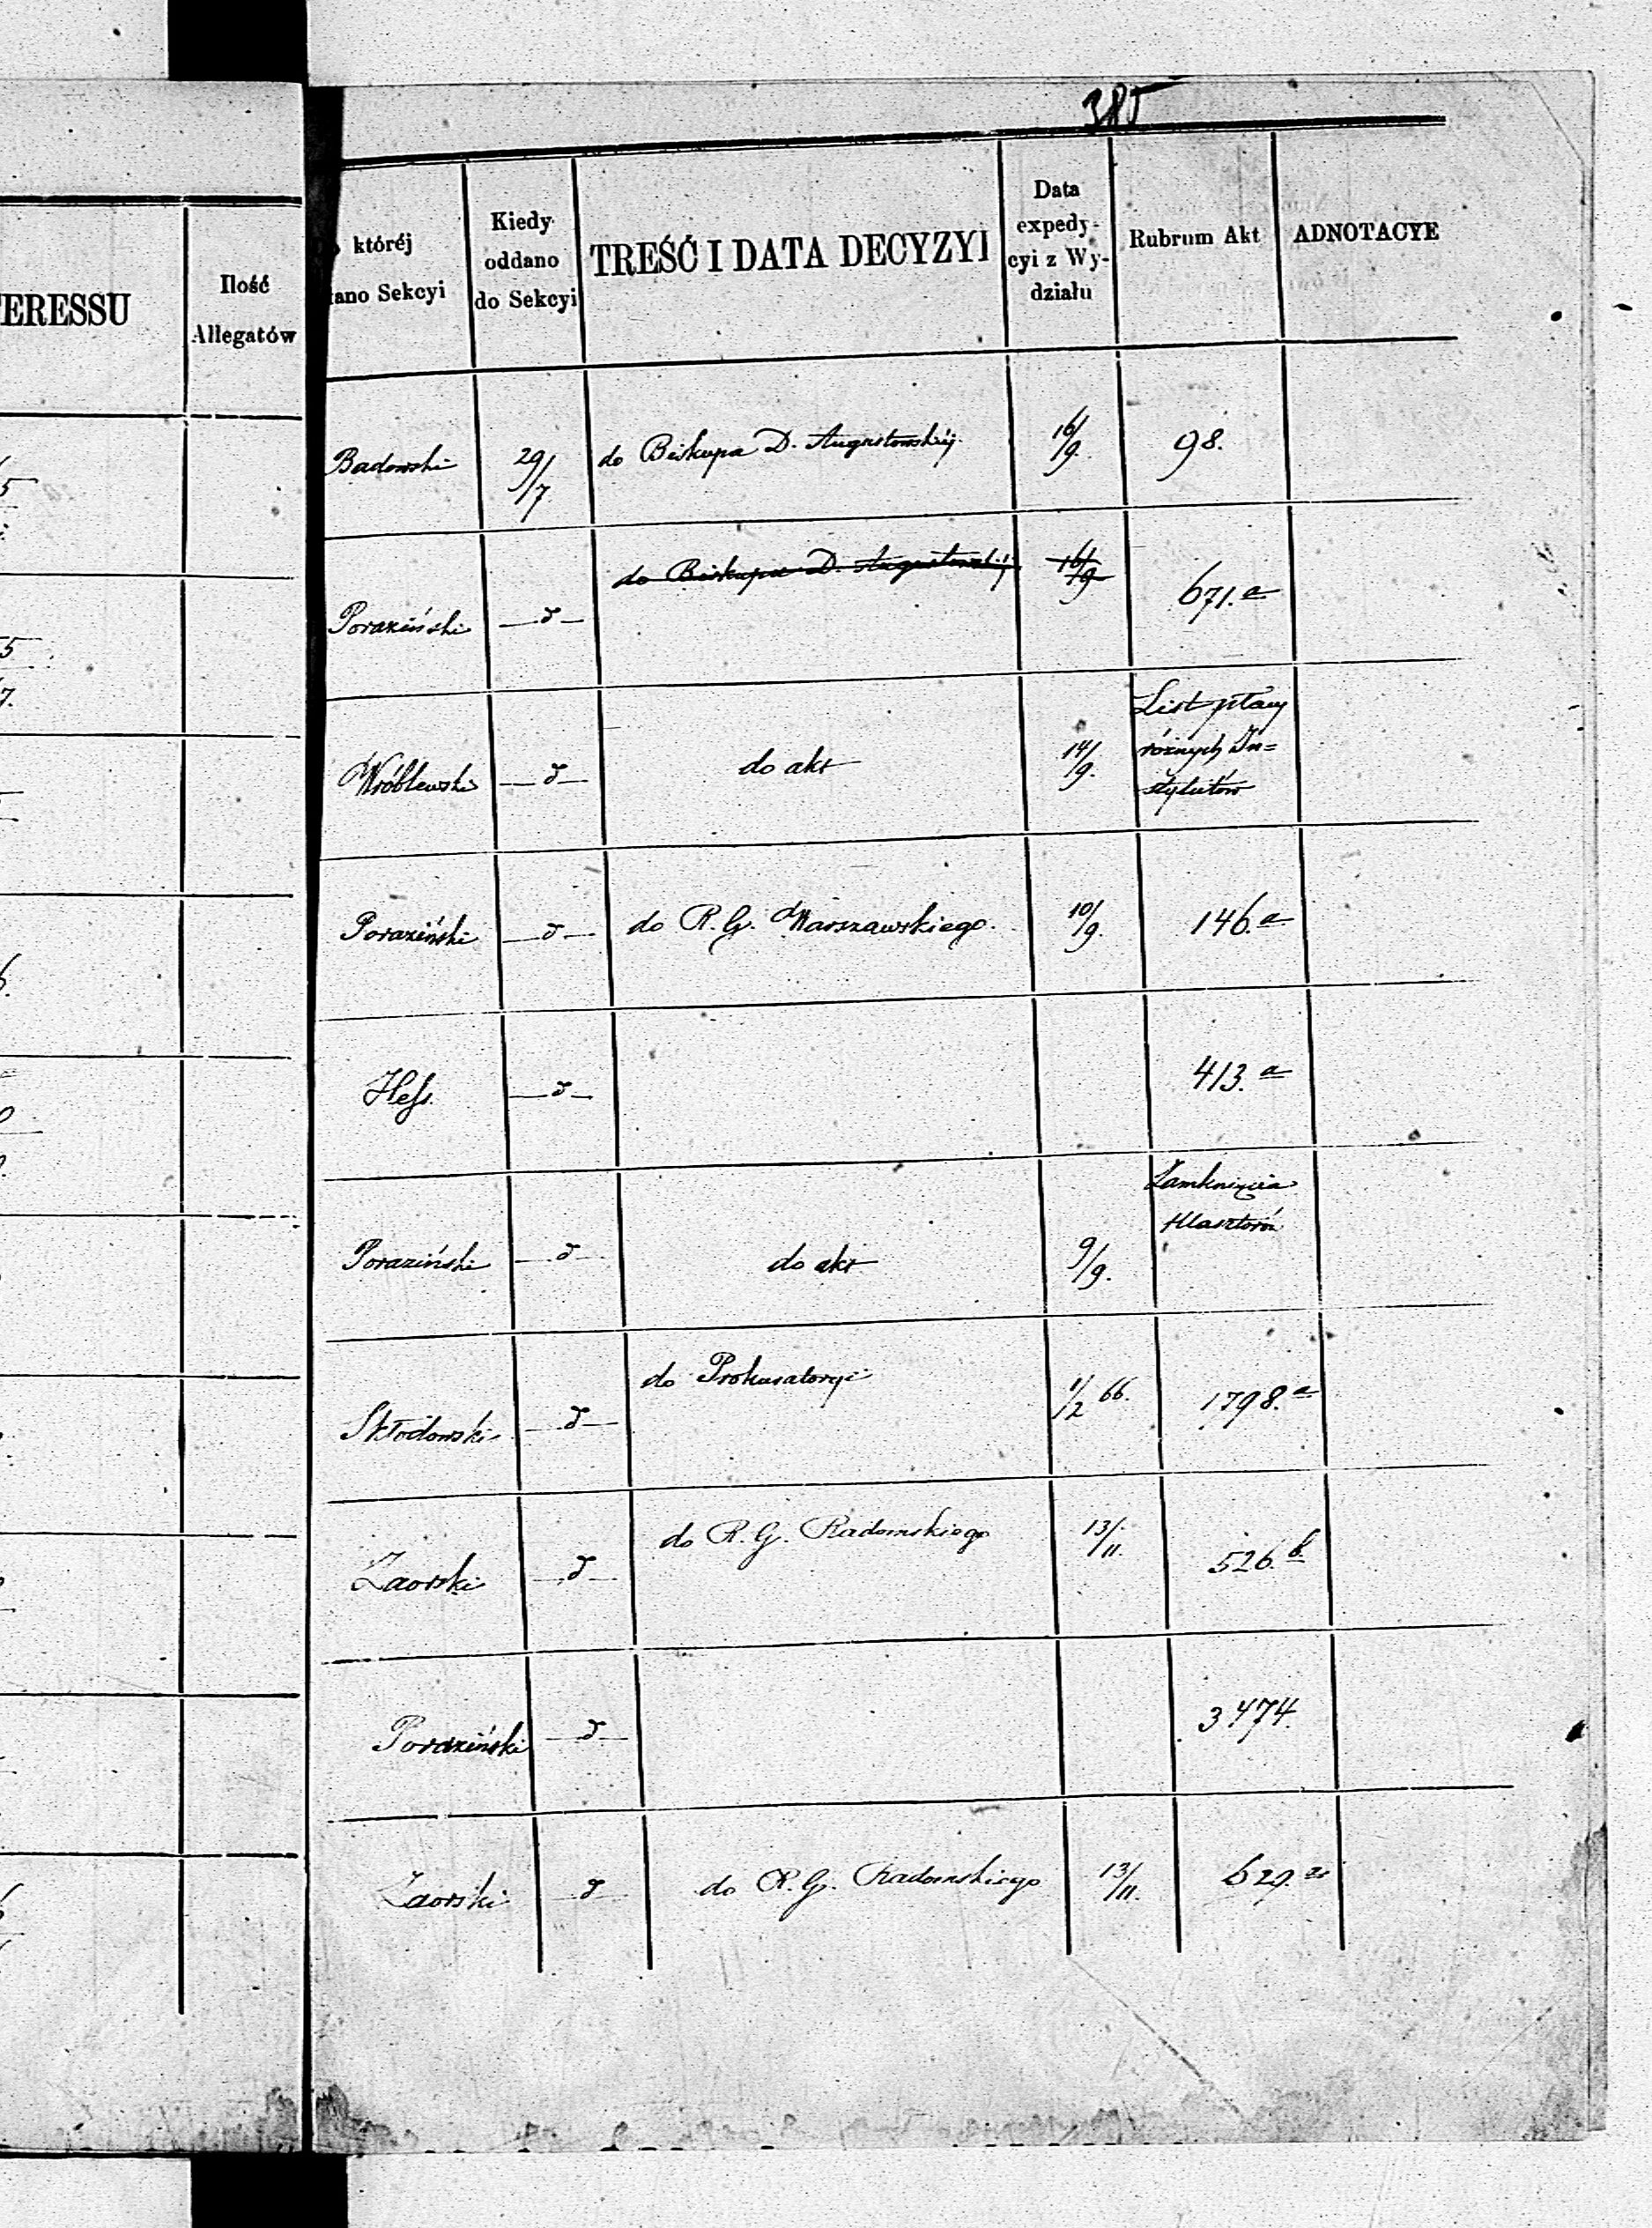 385
ERESSU
Ilość
Allegatów
któréj
ano Sekcyi
Kiedy
oddano
do Sekcyi
TREŚĆ I DATA DECYZYI
Data
expedy-
cyi z Wy-
działu
Rubrum Akt
ADNOTACYE
Badowski 29/7 do Biskupa D. Augustowskiéj 16/9. 98.
Poraziński —d— do Biskupa D. Augustowskiéj 16/9 671.a
Wróblewski —d— do akt 14/9.
List płacy
różnych In=
stytutów
Poraziński —d— do R. G. Warszawskiego. 10/9. 146.a
Hess. —d— 413.a
Poraziński —d— do akt 9/9.
Zamknięcia
Klasztorów
Skłodowski —d— do Prokuratoryi 1/2 66. 1798.a
Zaorski —d— do R. G. Radomskiego 13/11. 526.b
Poraziński —d— 3474.
Zaorski —d— do R. G. Radomskiego 13/11. 629.a